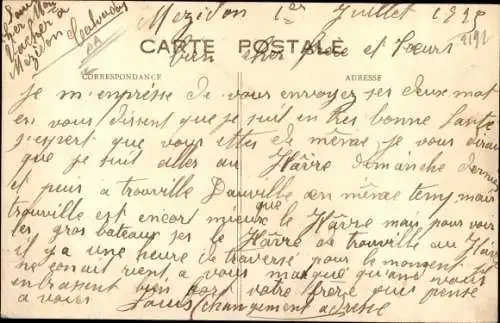 Mezidon 1er Juillet 19
Louis
chez Mon
Vacher a
Mezidon Calvados
CARTE POSTALE
bien cher frère et Sœurs
CORRESPONDANCE ADRESSE
Je m'enpresse de vous envoyez ses deux mot
en vous dissent que je suit en très bonne Santé
j'espert que vous ettes de même je vous dirai
que je suit aller au Hâvre dimanche dernier
et puis a trouville Dauville en même temp, mais
trouville est encor mieux que le Hâvre mais pour voir
les gros bateaux ses le Hâvre de trouville au Hâvre
il y a une heure de traversé pour le moment
ne connait rient, a vous marqué
enbrassent bien fort votre frère qui pense
a vous Louis (changement adresse